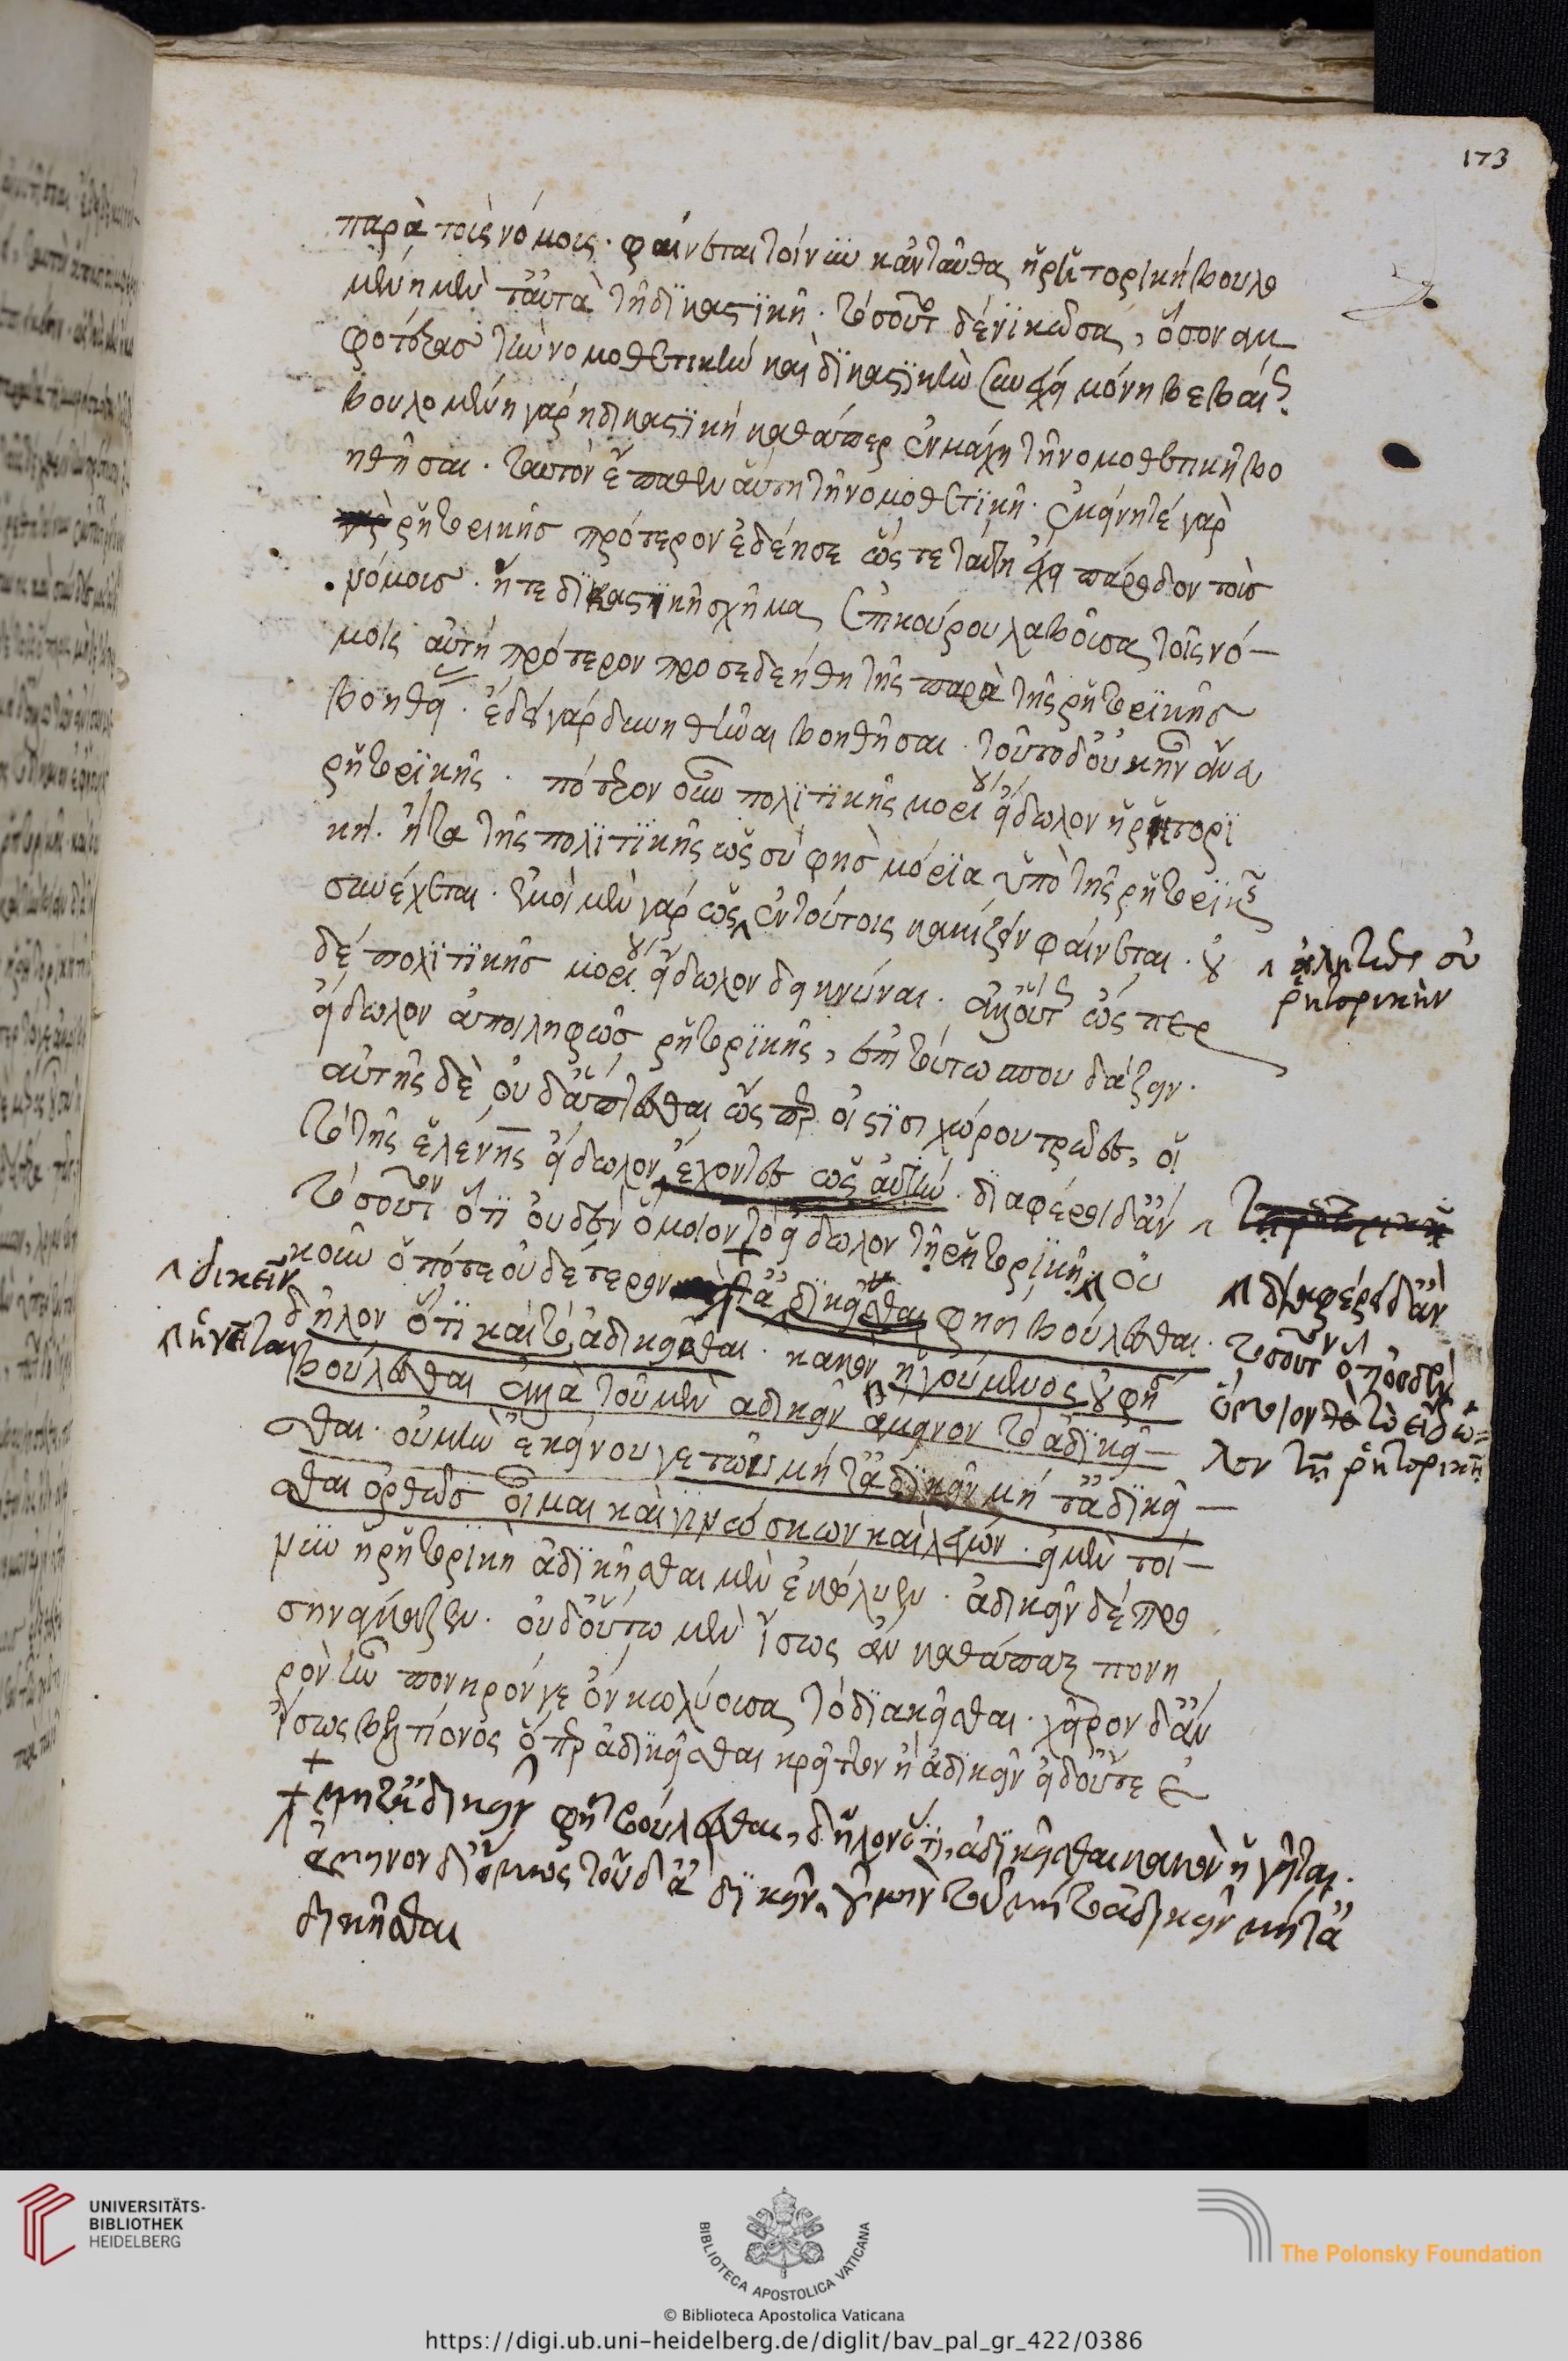 173
παρὰ τοῖς νόμοις. φαίνεται τοίνυν κἀνταῦθα ἡ ῥητορικὴ βουλο
μένη μὲν ταὐτὰ τῇ δικαστικῇ. τοσοῦτο δὲ νικῶσα, ὅσον ἀμ
φοτέρας τὴν νομοθετικὴν καὶ δικαστικὴν συνέχει μόνη βεβαίως.
βουλομένη γὰρ ἡ δικαστικὴ καθάπερ ἐν μάχῃ τῇ νομοθετικῇ βο
ηθῆσαι. ταυτὸν ἔπαθεν αὐτὴ τῇ νομοθετικῇ. ἐκείνη τε γὰρ
ῥητορικῆς πρότερον ἐδέησε ὥστε ταύτῃ ἔχει πάροδον τοῖς
νόμοις. ἥτε δικαστικὴ σχῆμα ἐπικούρου λαβοῦσα τοῖς νό-
μοις αὐτὴ πρότερον προσεδεήθη τῆς παρὰ τῆς ῥητορικῆς
βοηθεί. ἔδει γὰρ δυνηθῆναι βοηθῆσαι. τοῦτο δ' οὐκ ἦν ἄνευ
ῥητορικῆς. πότερον οὖν πολιτικῆς μορίου εἴδωλον ἡ ῥητορι
κή. ἢ τὰ τῆς πολιτικῆς ὡς σὺ φὴς μόρια ὑπὸ τῆς ῥητορικῆς
συνέχεται. ἐμοὶ μὲν γὰρ ὡς ἐν τούτοις κακίζειν φαίνεται. οὐ
δὲ πολιτικῆς μορίου εἴδωλον δεικνύναι. ἀλλ' οὕτως ὥσπερ
εἴδωλον ἀπειληφὼς ῥητορικῆς, ἐπὶ τούτω σπουδάζειν.
αὐτῆς δὲ οὐδ' ἅπτεσθαι ὥσπερ οἱ Στησιχόρου τρῶες, οἱ
τὸ τῆς ἑλένης εἴδωλον ἔχοντες ὡς αὐτήν. διαφέρει δ' ἂν
τοσοῦτον ὅτι οὐδὲν ὅμοιον τὸ εἴδωλον τῇ ῥητορικῇ. οὐ
κοῦν ὁπότε οὐδέτερον τἀδικεῖσθαι φησὶ βούλεσθαι.
δῆλον ὅτι καὶ τὸ ἀδικεῖσθαι. κακὸν ἡγούμενος οὔ φησι
βούλεσθαι ἀλλὰ τοῦ μὲν ἀδικεῖν ἄμεινον τὸ ἀδικεῖ-
σθαι. οὐ μὴν ἐκείνου γε τοῦ μήτ' ἀδικεῖν μήτ' ἀδικεῖ-
σθαι ὀρθῶς οἶμαι καὶ γινώσκων καὶ λέγων. εἰ μὲν τοί-
νυν ἡ ῥητορικὴ ἀδικεῖσθαι μὲν ἐκώλυεν. ἀδικεῖν δὲ προ
σηνάγκαζεν. οὐδ' οὕτω μὲν ἴσως ἂν καθάπαξ πονη
ρὸν ἦν πονηρόν γε ὂν κωλύουσα τὸ ἀδικεῖσθαι. χεῖρον δ' ἂν
ἴσως βελτίονος ὅπερ ἀδικεῖσθαι κρεῖττον ἢ ἀδικεῖν εἰ δ' οὔτε ἐ
+ μήτ' ἀδικεῖν φησὶ βούλεσθαι, δῆλον ὅτι, ἀδικεῖσθαι κακὸν ἡγεῖται.
ἄμεινον δ' ὅμως τοῦ δ' ἀδικεῖν. οὐ μὴν τοῦ μήτ' ἀδικεῖν μήτ' ἀ
δικεῖσθαι
ἀληθῶς οὐ
ῥητορικὴν
διαφέρει δ' ἂν
τοσοῦτον ὅτι οὐδὲν
ὅμοιον τὸ εἴδω=
λον τῇ ῥητορικῇ
δικεῖν
ἡγεῖται
UNIVERSITÄTS-
BIBLIOTHEK
HEIDELBERG
BIBLIOTECA APOSTOLICA VATICANA
The Polonsky Foundation
© Biblioteca Apostolica Vaticana
https://digi.ub.uni-heidelberg.de/diglit/bav_pal_gr_422/0386